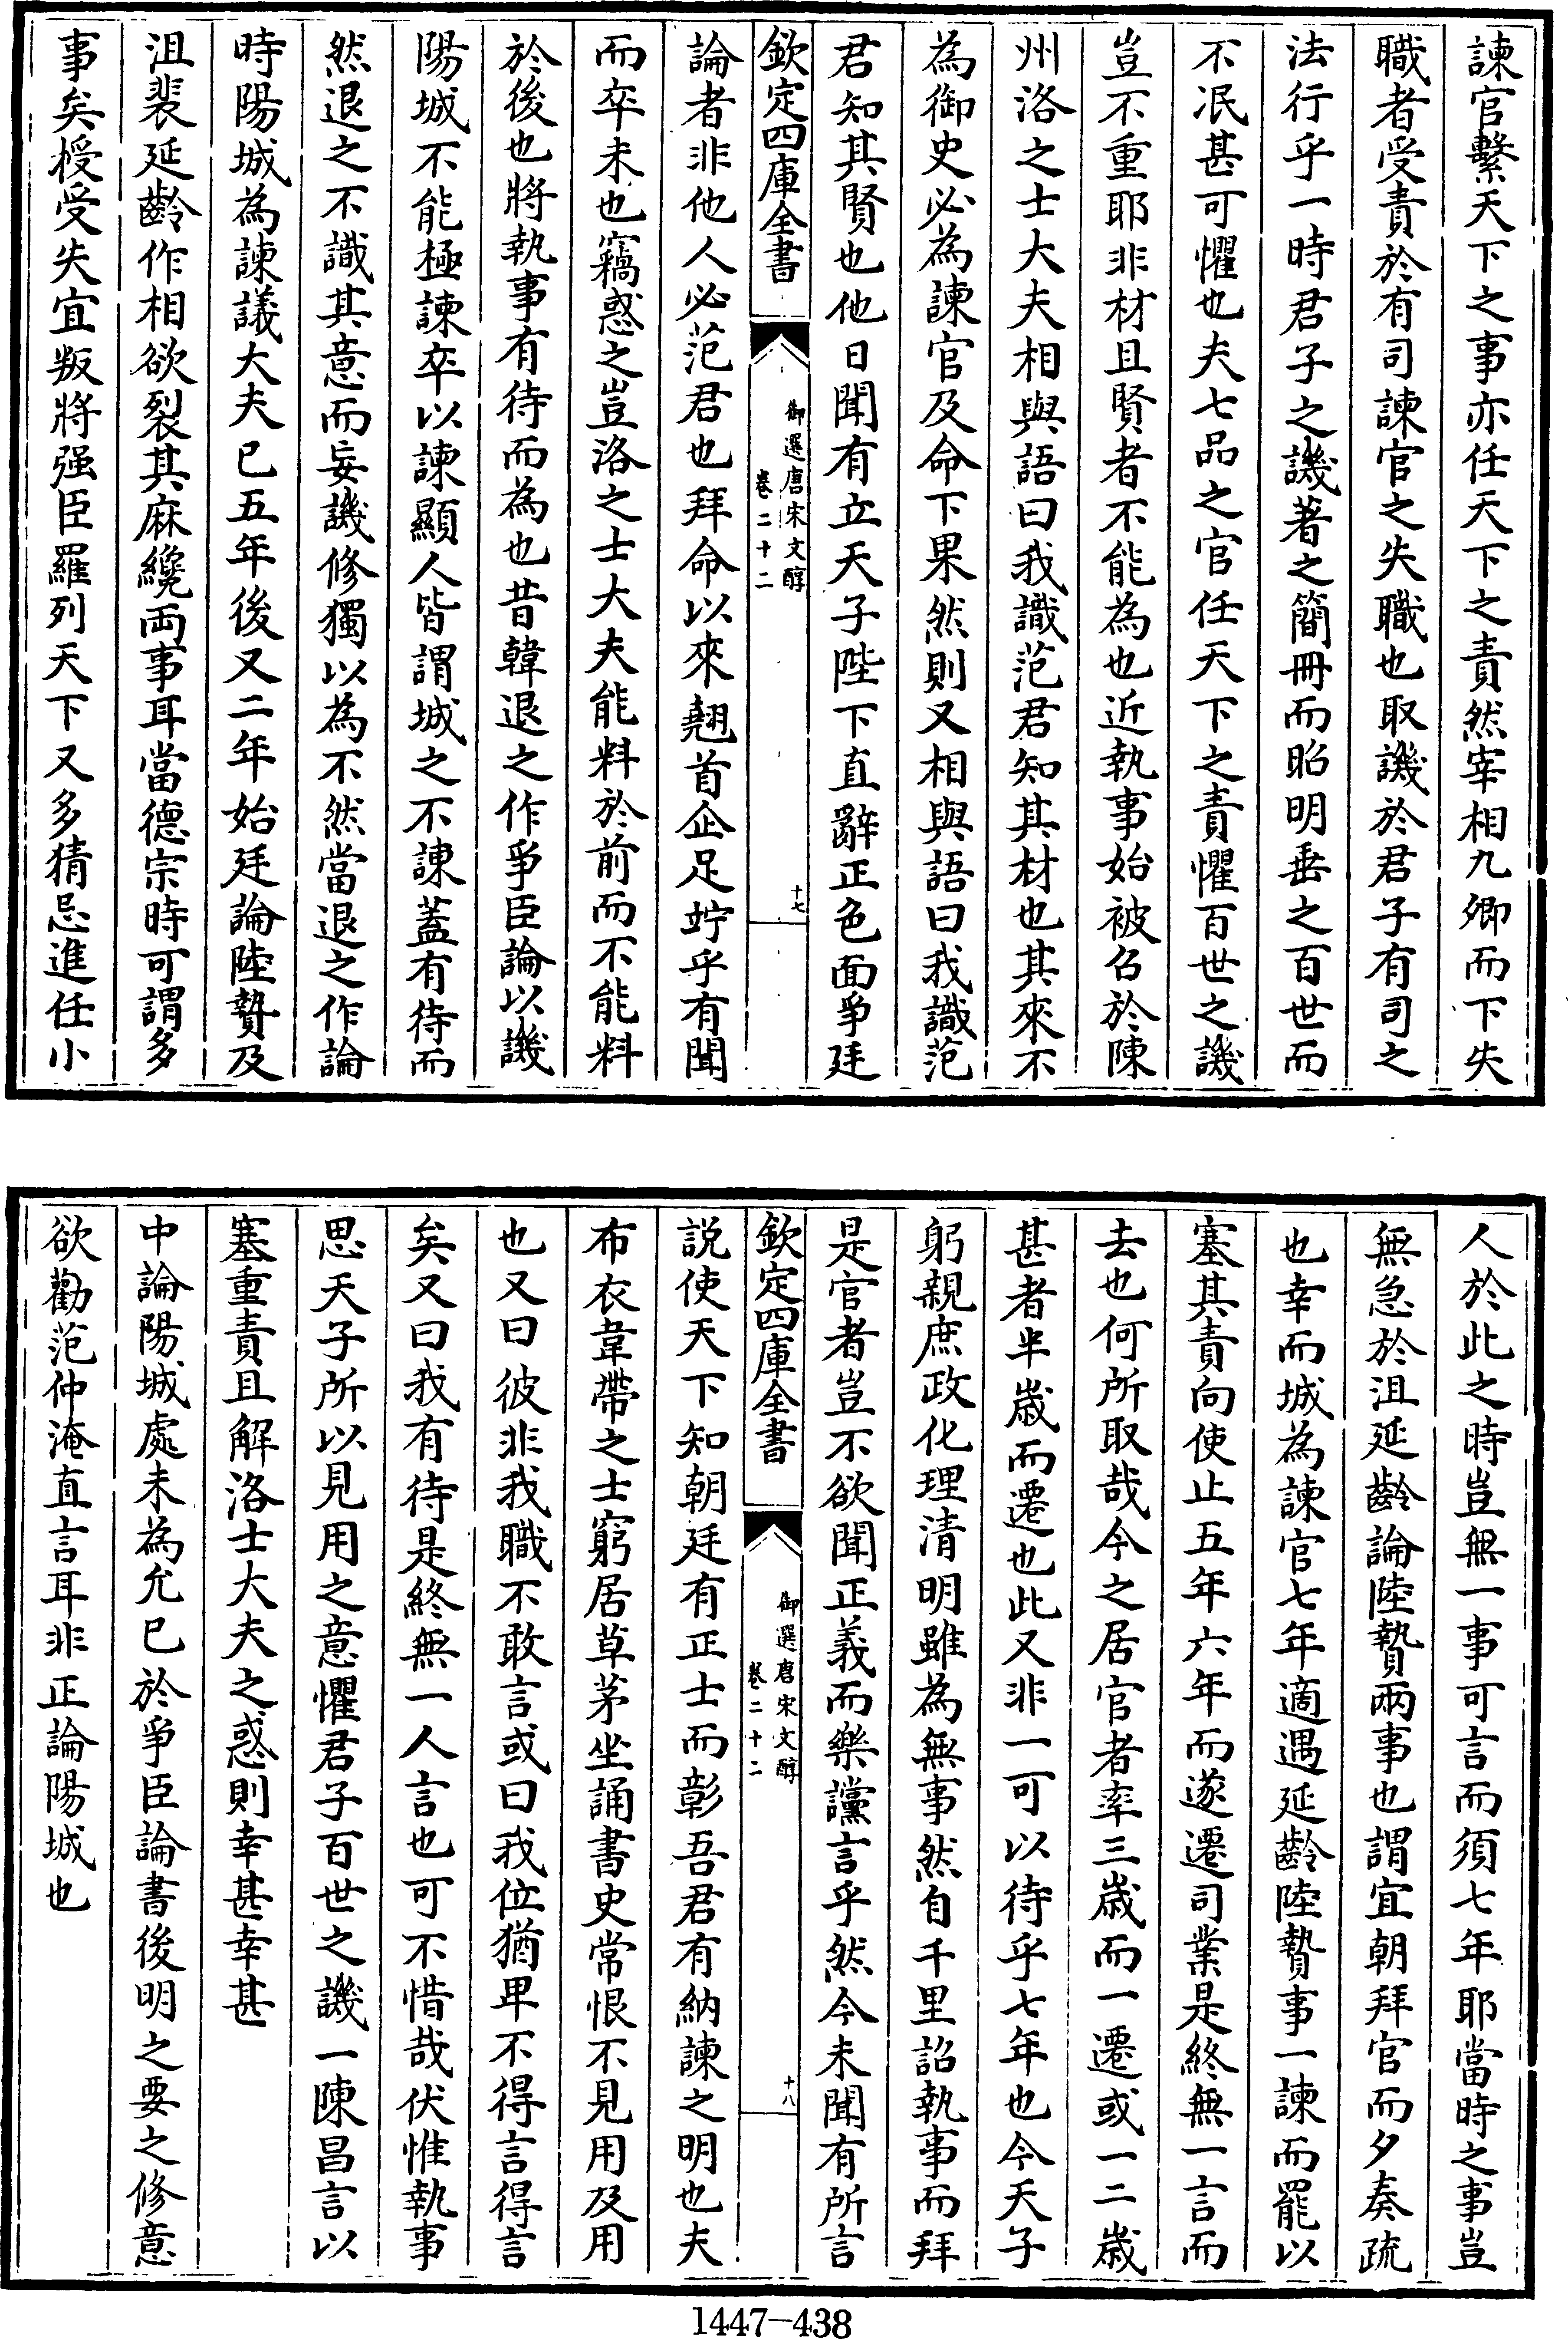 諫官繫天下之事亦任天下之責然宰相九卿而下失
職者受責於有司諫官之失職也取譏於君子有司之
法行乎一時君子之譏著之簡冊而昭明垂之百世而
不泯甚可懼也夫七品之官任天下之責懼百世之譏
豈不重耶非材且賢者不能為也近執事始被召於陳
州洛之士大夫相與語曰我識范君知其材也其來不
為御史必為諫官及命下果然則又相與語曰我識范
君知其賢也他日聞有立天子陛下直辭正色面爭廷
欽定四庫全書
御選唐宋文醇
卷二十二
十七
論者非他人必范君也拜命以來翹首企足竚乎有聞
而卒未也竊惑之豈洛之士大夫能料於前而不能料
於後也將執事有待而為也昔韓退之作爭臣論以譏
陽城不能極諫卒以諫顯人皆謂城之不諫蓋有待而
然退之不識其意而妄譏修獨以為不然當退之作論
時陽城為諫議大夫已五年後又二年始廷論陸贄及
沮裴延齡作相欲裂其麻纔兩事耳當德宗時可謂多
事矣授受失宜叛將强臣羅列天下又多猜忌進任小
人於此之時豈無一事可言而須七年耶當時之事豈
無急於沮延齡論陸贄兩事也謂宜朝拜官而夕奏疏
也幸而城為諫官七年適遇延齡陸贄事一諫而罷以
塞其責向使止五年六年而遂遷司業是終無一言而
去也何所取哉今之居官者率三歲而一遷或一二歲
甚者半歲而遷也此又非一可以待乎七年也今天子
躬親庶政化理清明雖為無事然自千里詔執事而拜
是官者豈不欲聞正義而樂讜言乎然今未聞有所言
欽定四庫全書
御選唐宋文醇
卷二十二
十八
説使天下知朝廷有正士而彰吾君有納諫之明也夫
布衣韋帶之士窮居草茅坐誦書史常恨不見用及用
也又曰彼非我職不敢言或曰我位猶卑不得言得言
矣又曰我有待是終無一人言也可不惜哉伏惟執事
思天子所以見用之意懼君子百世之譏一陳昌言以
塞重責且解洛士大夫之惑則幸甚幸甚
中論陽城處未為允已於爭臣論書後明之要之修意
欲勸范仲淹直言耳非正論陽城也
1447-438